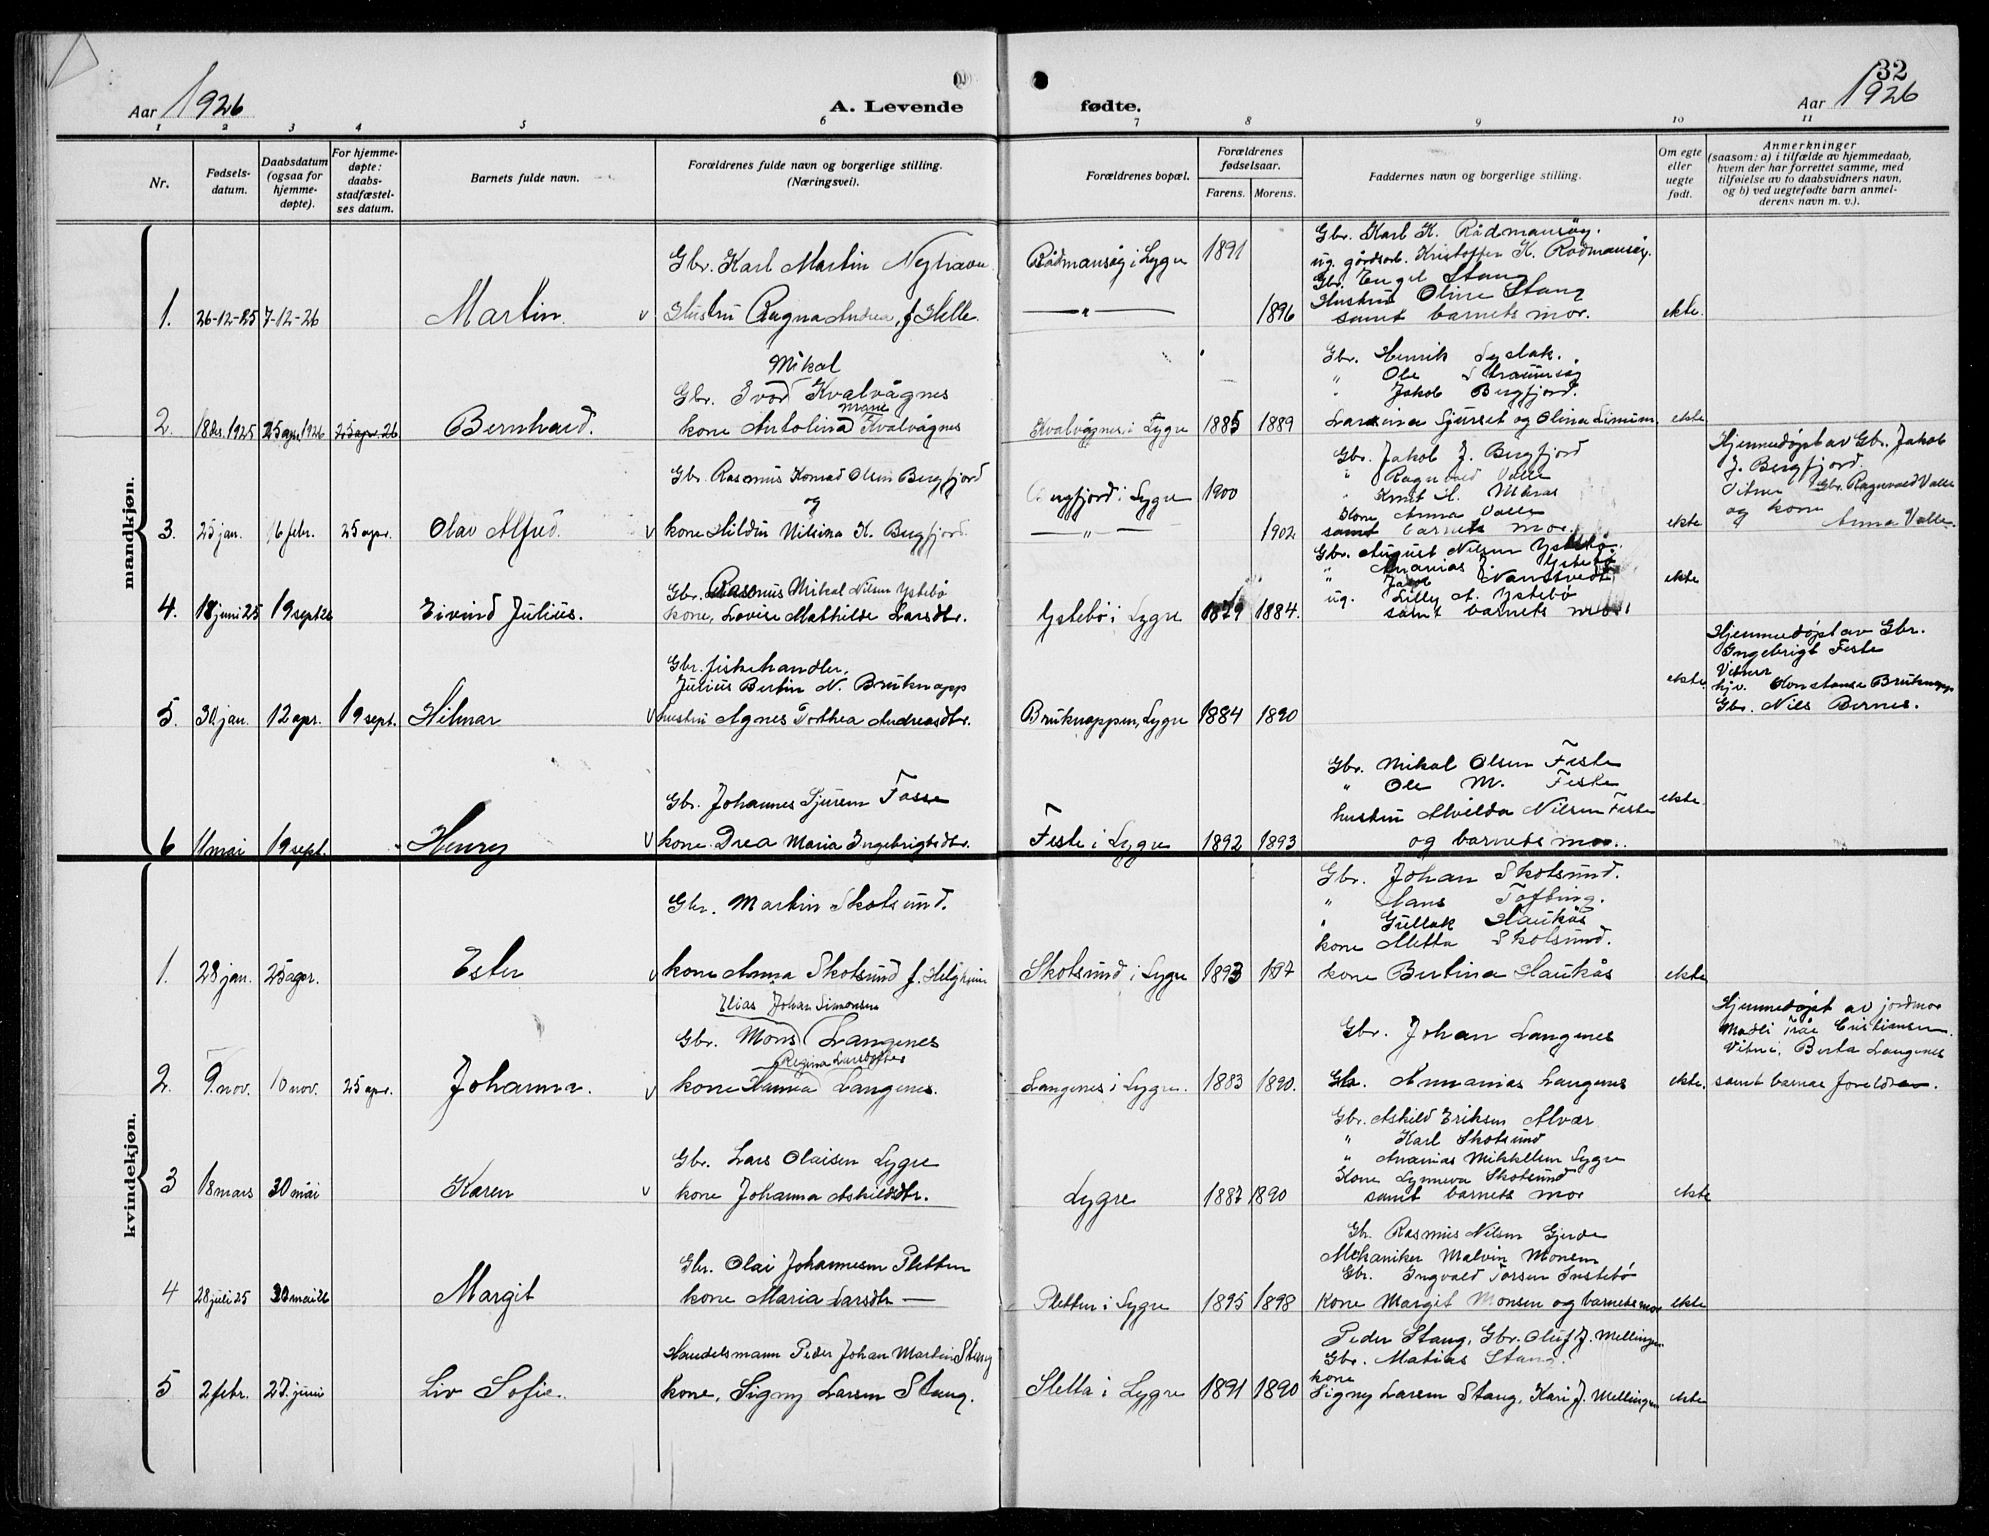 32
Aar 1926
A. Levende fødte.
Aar 1926
1 2 3 4 5 6 7 8 9 10 11
Nr.
Fødsels-
datum.
Daabsdatum
(ogsaa for
hjemme-
døpte).
For hjemme-
døpte:
daabs-
stadfæstel-
ses datum.
Barnets fulde navn.
Forældrenes fulde navn og borgerlige stilling.
(Næringsvei).
Forældrenes bopæl.
Forældrenes
fødselsaar.
Farens. Morens.
Faddernes navn og borgerlige stilling.
Om egte
eller
uegte
født.
Anmerkninger
(saasom: a) i tilfælde av hjemmedaab,
hvem der har forrettet samme, med
tilføielse av to daabsvidners navn,
og b) ved uegtefødte barn anmel-
derens navn m. v.).
mandkjøn.
Gbr. Karl Martin
Rådmansøy i Lygre 1891
Gbr. Karl K. Rådmansøy.
ug. gårdsarb. Kristoffer K. Rådmansøy.
Gbr. Engel Stang
Hustru Oline Stang
1. 26-12-25 7-12-26 Martin. v Hustru Ragna Andrea, f. Helle. — " — 1896 samt barnets mor. ekte.
Mikal
Gbr. Ivar Kvalvågnes
Gbr. Henrik
" Ole
Jakob Bergfjord.
2. 18 des. 1925 25 apr. 1926 25 apr. 26 Bernhard. kone Antolina Marie Kvalvågnes Kvalvågnes i Lygre 1885 1889 og Olina ekte
Gbr. Rasmus Konrad Olsen Bergfjord
og
Bergfjord i Lygre 1900
Gbr. Jakob J. Bergfjord
" Ragnvald Valle
" Knut H.
Kone Anna Valle
Hjemmedøpt av Gbr. Jakob
J. Bergfjord.
Vitner Gbr. Ragnvald Valle
og kone
Anna Valle.
3. 25 jan. 6 febr. 25 apr. Olav Alfred. v kone Hildur Nilsina K. Bergfjord. — " — 1902 samt barnets mor. ekte
Gbr. Rasmus Mikal Nilsen Ystebø
Gbr. August Nilsen Ystebø.
" Ananias J. Ystebø
" Jakob
ug. Lilly A. Ystebø
4. 18 juni 25 19 sept 26 Eivind Julius. kone, Lovise Mathilde Larsdtr. Ystebø i Lygre 1879 1884. samt barnets mor. ekte
Gbr. fiskehandler,
Julius Bertin N. Bruknapp
Hjemmedøpt av Gbr.
Ingebrigt Feste
Vitner
hjv. Konstanse Bruknapp
Gbr. Nils Bernes.
5. 30 jan. 12 apr. 19 sept. Hilmar v hustru Agnes Dorthea Andreasdtr. Bruknappen, Lygre 1884 1890 ekte.
Gbr. Johannes Sjursen Fosse
Gbr. Mikal Olsen Feste
" Ole M. Feste
hustru Alvilda Nilsen Feste
6 11 mai 19 sept. Henry v kone Drea Maria Ingebrigtsdtr. Feste i Lygre 1892 1893 og barnets mor. ekte
kvindekjøn.
Gbr. Martin Skotsund.
Gbr. Johan Skotsund.
" Hans
" Gullak Haukås
kone Aletta Skotsund.
1. 28 jan. 25 apr. Ester v kone Anna Skotsund f. Skotsund i Lygre 1893 kone Bertina Haukås ekte
Elias Johan Simonsen
Gbr. Mons Langenes
Regina Larsdotter
Gbr. Johan Langenes
Hjemmedøpt av jordmor
Vitner, Berta Langenes
samt barnas foreldre.
2. 9. nov. 10 nov. 25 apr. Johanna. v kone Langenes. Langenes i Lygre. 1883 1890. Gbr. Annanias Langenes ekte.
Gbr. Lars Olaisen Lygre
Gbr. Askild Eriksen Alvær
" Karl Skotsund
" Ananias Mikkelsen Lygre
Kone Synneva Skotsund
3 18 mars 30 mai Karen v kone Johanna Askildsdtr. Lygre 1887 1890 samt barnets mor ekte
Gbr. Olai Johannesen Sletten
Gbr. Rasmus Nilsen Gjerde
Mekaniker Malvin Monsen
Gbr. Ingvald
4 28 juli 25 30 mai 26 Margit kone Maria Larsdtr — Sletten i Lygre 1895 1898 Kone Margit Monsen og barnets mor ekte
Handelsmann Peder Johan Martin Stang
Peder Stang, Gbr. Oluf J. Mellingen
Gbr. Matias Stang.
kone
5 2 febr. 27. juni Liv Sofie. kone, Signy Larsen Stang. Sletta i Lygre 1891 1890 Signy Larsen Stang, Kari J. Mellingen ekte